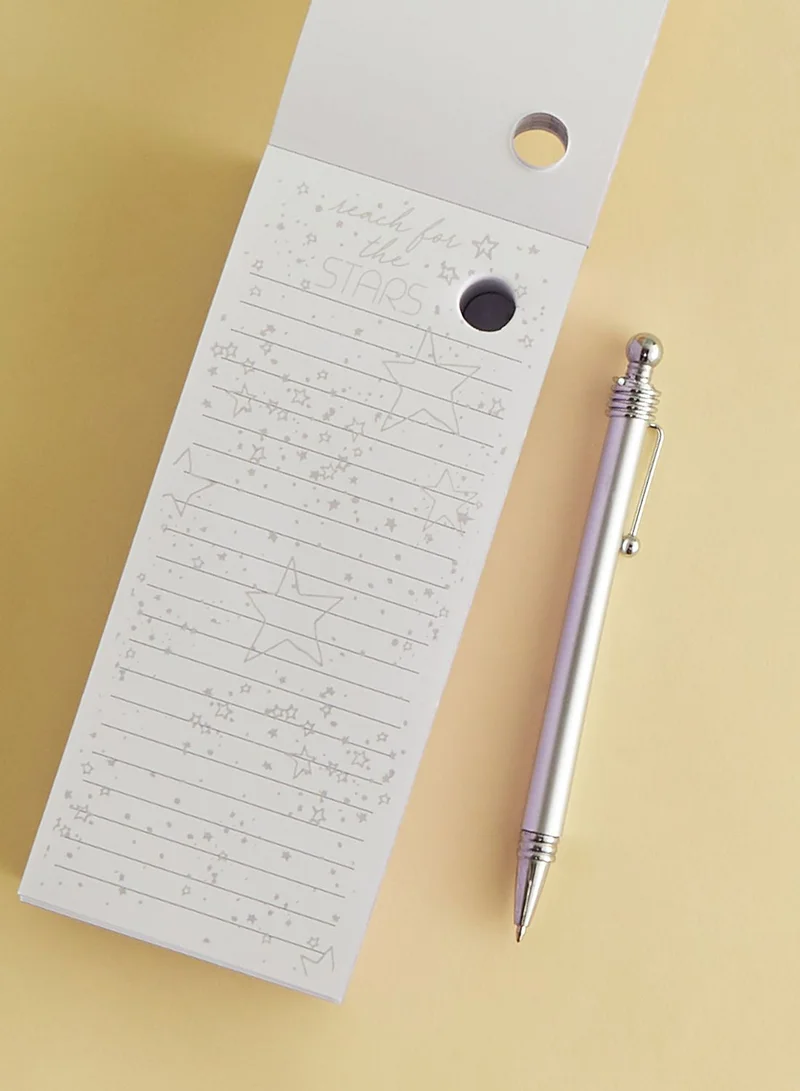 reach for
the
STARS